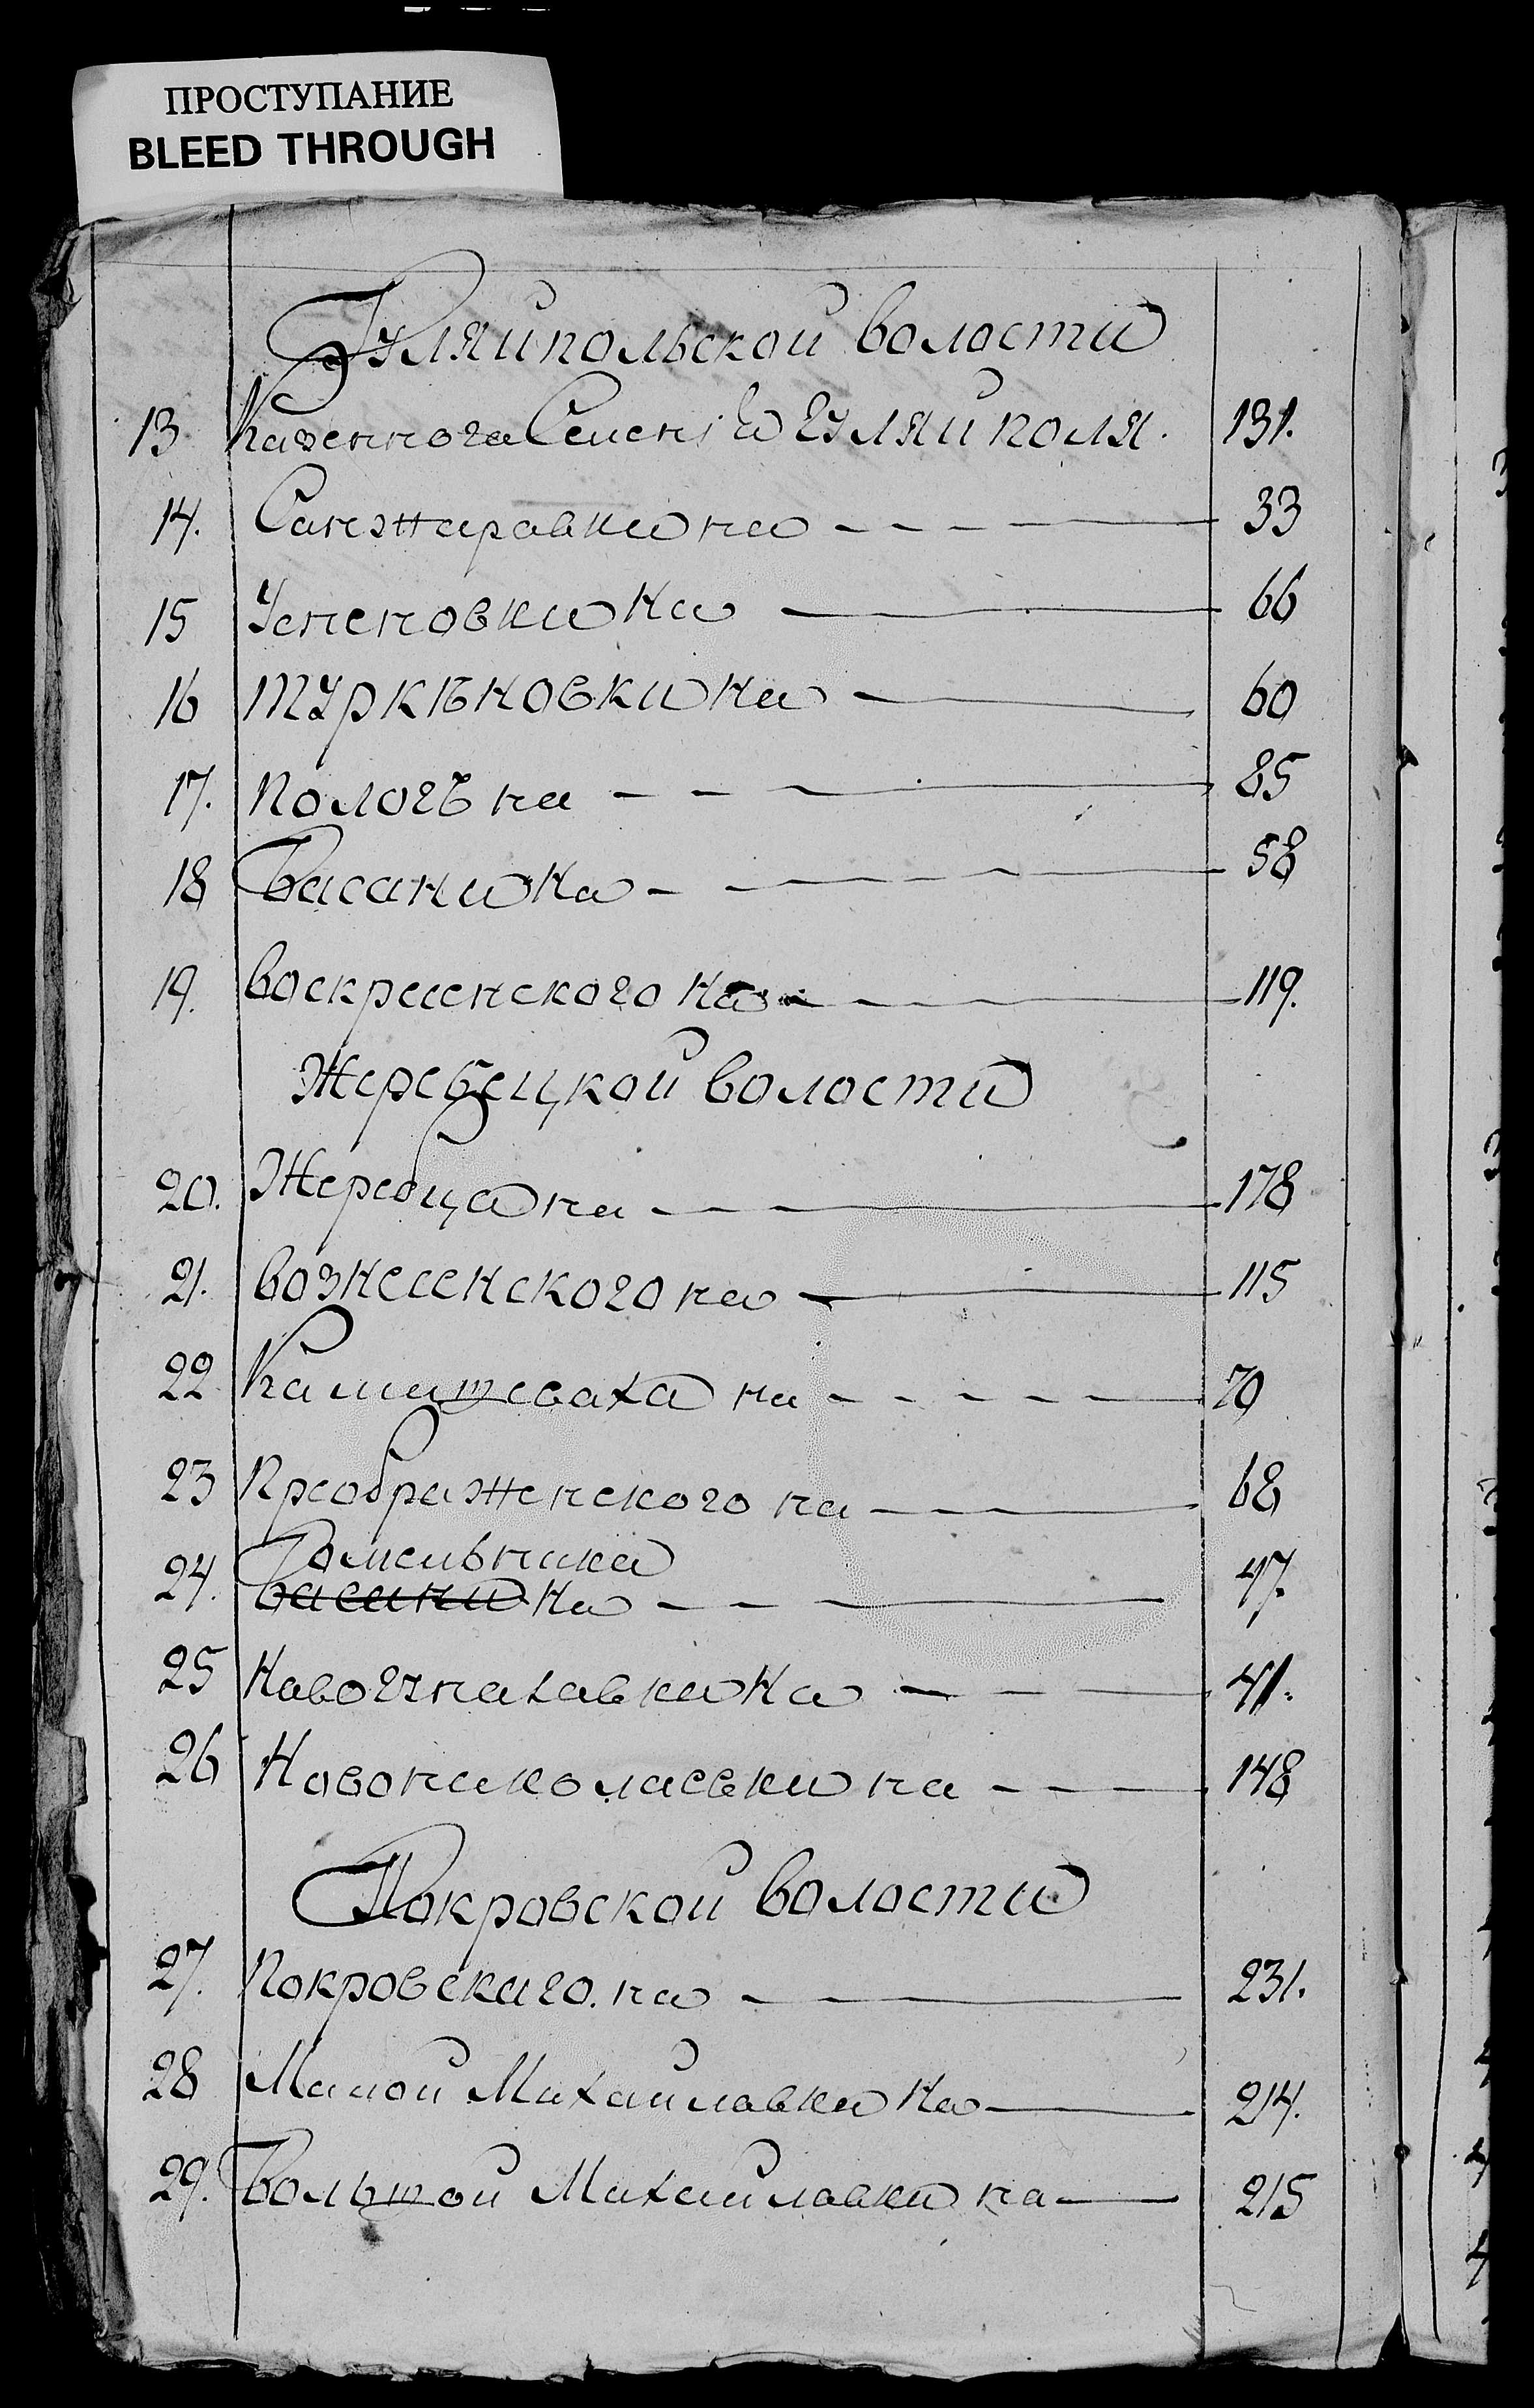 ПРОСТУПАНИЕ
BLEED THROUGH
Гуляйпольской волости
13 Казенного Селенія гуляйполя. 131.
14. Санжаравки на 33
15 Успеновки на 66
16 Туркѣновки на 60
17. Пологъ на 85
18 Басани на 58
19. воскресенского на 119.
Жеребецкой волости
20. Жеребца на 178
21. вознесенского на 115
22 Камишеваха на 70
23 Преображенского на 68
24. Гомельника
Басани на 47.
25 Новогупаловки на 41.
26 Новониколаевки на 148
Покровской волости
27. Покровскаго. на 231.
28 Малой Михайлавки на 214.
29. Большой Михайлавки на 215